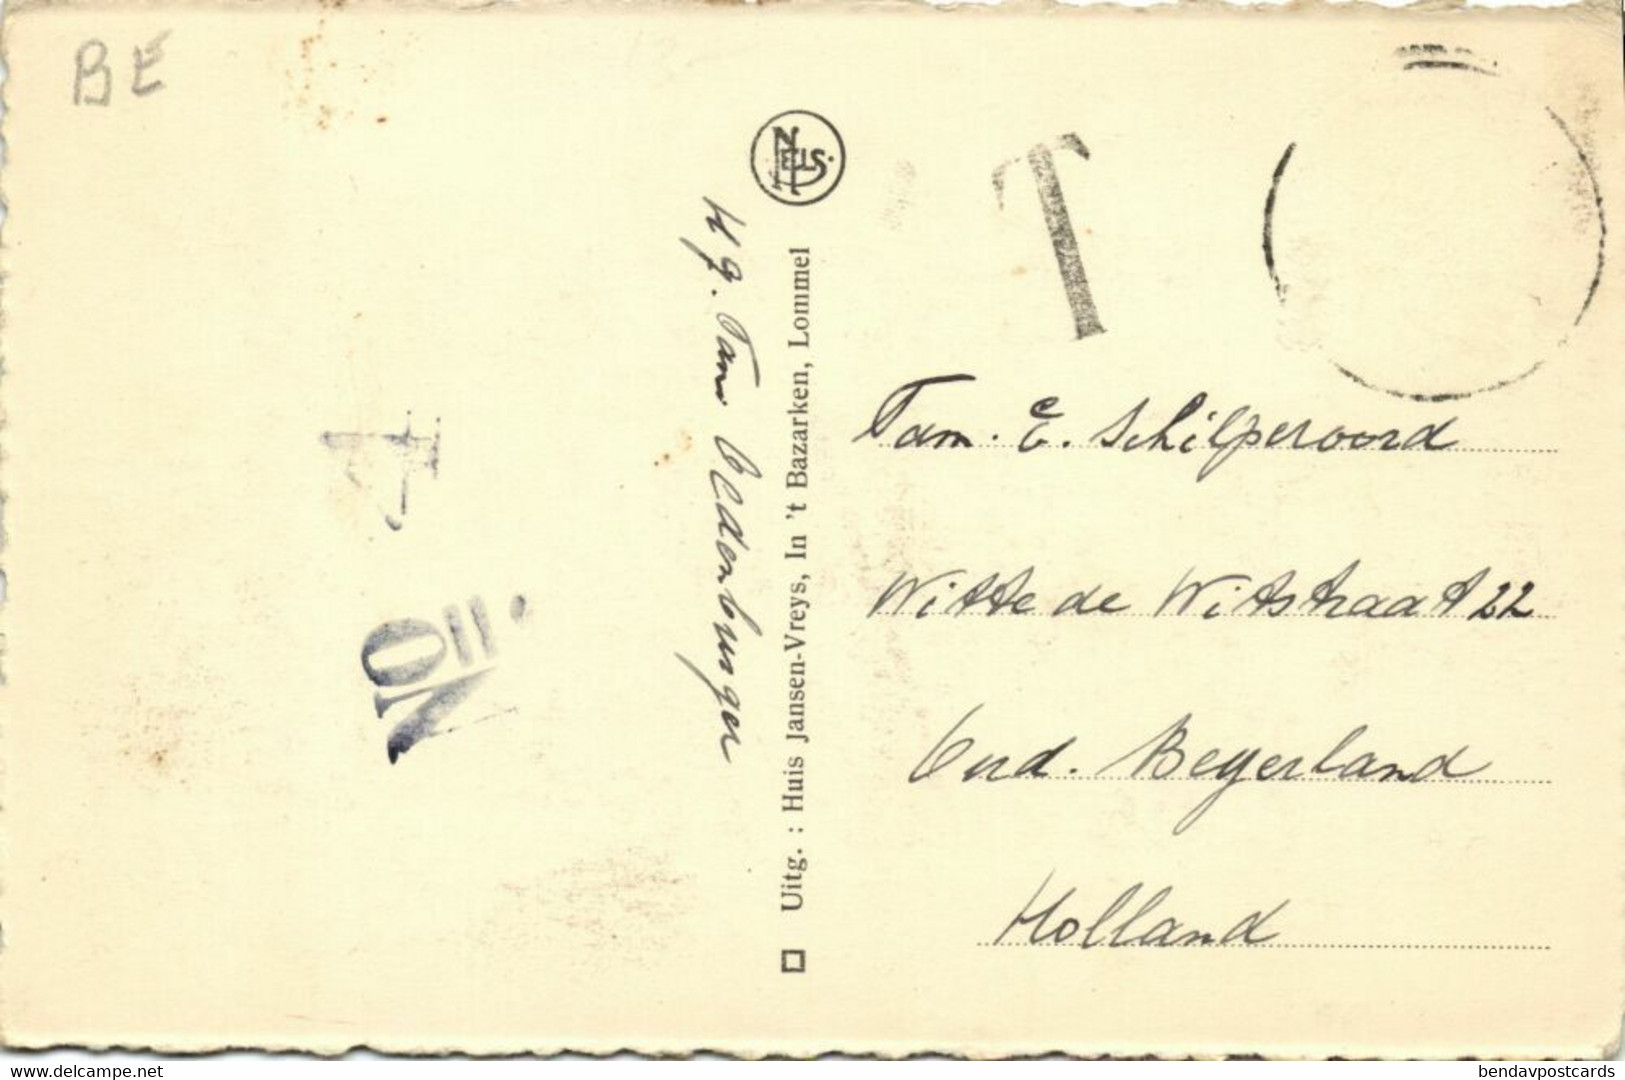 BE
NELS
T
Uitg. : Huis Jansen-Vreys, In 't Bazarken, Lommel
Hg. Fam Oldenburger
No. 4
Fam. E. Schilperoord
Witte de Witstraat 22
Oud. Beyerland
Holland
bendavpostcards